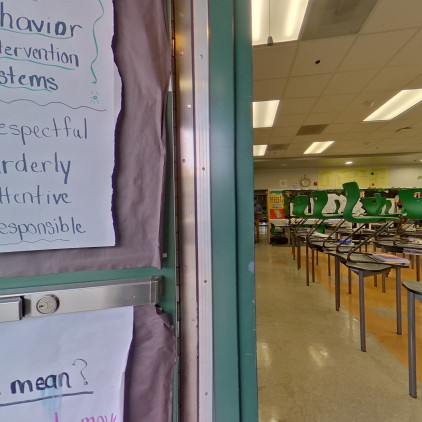 havior
tervention
stems
espectful
rderly
ttentive
esponsible
mean?